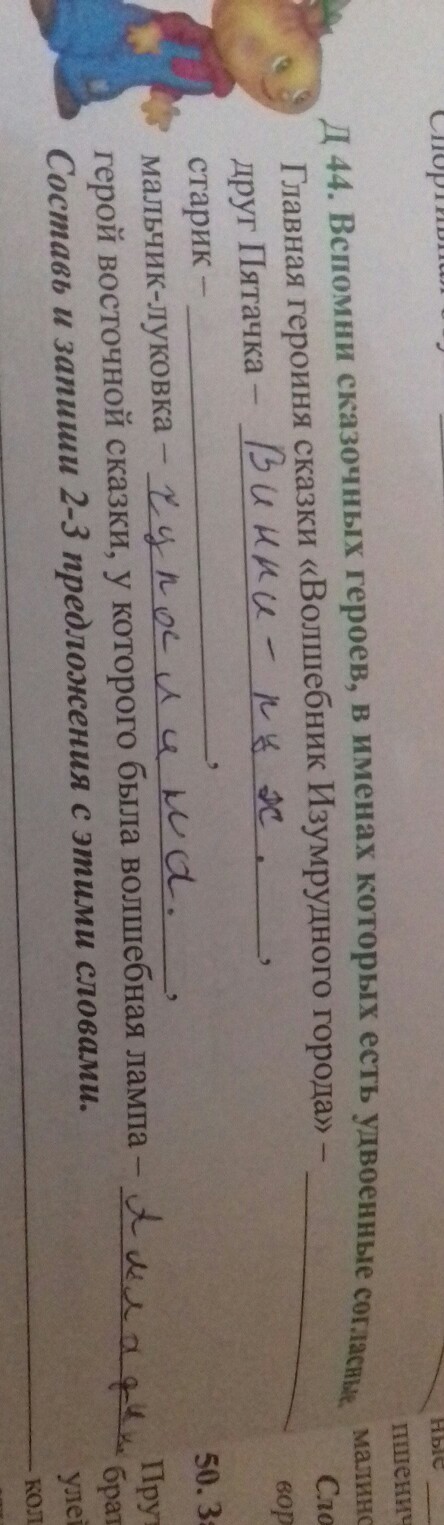 Спортивная
Д 44. Вспомни сказочных героев, в именах которых есть удвоенные согласные.
Главная героиня сказки «Волшебник Изумрудного города» –
друг Пятачка – Винни-пух. ,
старик – ,
мальчик-луковка – ,
герой восточной сказки, у которого была волшебная лампа –
Составь и запиши 2-3 предложения с этими словами.
ные
пшенич
малино
Сло
вор
50. За
Прут
брат
улей
кол